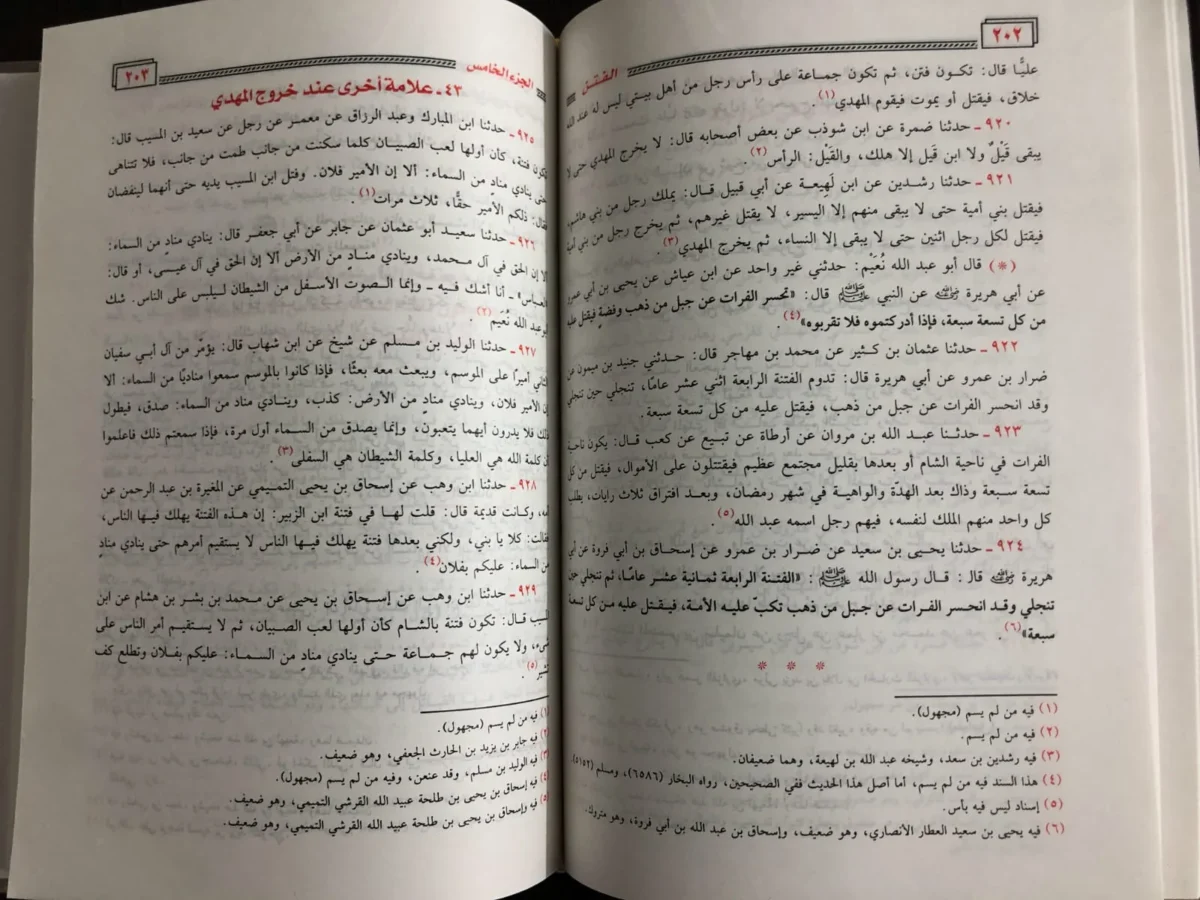 ٢٠٢
الفتن
عليًّا قال: تكون فتن، ثم تكون جماعة على رأس رجل من أهل بيتي ليس له عند الله
خلاق، فيقتل أو يموت فيقوم المهدي(١).
٩٢٠ ـ حدثنا ضمرة عن ابن شوذب عن بعض أصحابه قال: لا يخرج المهدي حتى لا
يبقى قَيْلٌ ولا ابن قَيل إلا هلك، والقَيْل: الرأس(٢).
٩٢١ ـ حدثنا رشدين عن ابن لَهِيعة عن أبي قبيل قال: يملك رجل من بني هاشم،
فيقتل بني أمية حتى لا يبقى منهم إلا اليسير، لا يقتل غيرهم، ثم يخرج رجل من بني أمية
فيقتل لكل رجل اثنين حتى لا يبقى إلا النساء، ثم يخرج المهدي(٣).
(*) قال أبو عبد الله نُعَيْم: حدثني غير واحد عن ابن عياش عن يحيى بن أبي عمرو
عن أبي هريرة ﷺ عن النبي ﷺ قال: «تحسر الفرات عن جبل من ذهب وفضةٍ فيقتل عليه
من كل تسعة سبعة، فإذا أدركتموه فلا تقربوه»(٤).
٩٢٢ ـ حدثنا عثمان بن كثير عن محمد بن مهاجر قال: حدثني جنيد بن ميمون عن
ضرار بن عمرو عن أبي هريرة قال: تدوم الفتنة الرابعة اثني عشر عامًا، تنجلي حين تنجلي
وقد انحسر الفرات عن جبل من ذهب، فيقتل عليه من كل تسعة سبعة.
٩٢٣ ـ حدثنا عبد الله بن مروان عن أرطاة عن تبيع عن كعب قال: يكون ناحية
الفرات في ناحية الشام أو بعدها بقليل مجتمع عظيم فيقتتلون على الأموال، فيقتل من كل
تسعة سبعة وذاك بعد الهدّة والواهية في شهر رمضان، وبعد افتراق ثلاث رايات، يطلب
كل واحد منهم الملك لنفسه، فيهم رجل اسمه عبد الله(٥).
٩٢٤ ـ حدثنا يحيى بن سعيد عن ضرار بن عمرو عن إسحاق بن أبي فروة عن أبي
هريرة ﷺ قال: قال رسول الله ﷺ: «الفتنة الرابعة ثمانية عشر عامًا، ثم تنجلي حين
تنجلي وقد انحسر الفرات عن جبل من ذهب تكبّ عليه الأمة، فيقتل عليه من كل تسعة
سبعة»(٦).
* * *
(١) فيه من لم يسم (مجهول).
(٢) فيه من لم يسم.
(٣) فيه رشدين بن سعد، وشيخه عبد الله بن لهيعة، وهما ضعيفان.
(٤) هذا السند فيه من لم يسم، أما أصل هذا الحديث ففي الصحيحين، رواه البخار (٦٥٨٦)، ومسلم (٥١٥٢).
(٥) إسناد ليس فيه بأس.
(٦) فيه يحيى بن سعيد العطار الأنصاري، وهو ضعيف، وإسحاق بن عبد الله بن أبي فروة، وهو متروك.
الجزء الخامس
٢٠٣
٤٣ ـ علامة أخرى عند خروج المهدي
٩٢٥ ـ حدثنا ابن المبارك وعبد الرزاق عن معمر عن رجل عن سعيد بن المسيب قال:
تكون فتنة، كأن أولها لعب الصبيان كلما سكنت من جانب طمت من جانب، فلا تتناهى
حتى ينادي منادٍ من السماء: ألا إن الأمير فلان. وفتل ابن المسيب يديه حتى أنهما لينفضان
فقال: ذلكم الأمير حقًّا، ثلاث مرات(١).
٩٢٦ ـ حدثنا سعيد أبو عثمان عن جابر عن أبي جعفر قال: ينادي منادٍ من السماء:
ألا إن الحق في آل محمد، وينادي منادٍ من الأرض ألا إن الحق في آل عيسى، أو قال:
«العباس» ـ أنا أشك فيه ـ وإنما الصوت الأسفل من الشيطان ليلبس على الناس. شك
أبو عبد الله نُعَيم(٢).
٩٢٧ ـ حدثنا الوليد بن مسلم عن شيخ عن ابن شهاب قال: يؤمّر من آل أبي سفيان
الثاني أميرًا على الموسم، ويبعث معه بعثًا، فإذا كانوا بالموسم سمعوا مناديًا من السماء: ألا
إن الأمير فلان، وينادي منادٍ من الأرض: كذب، وينادي مناد من السماء: صدق، فيطول
ذلك فلا يدرون أيهما يتعبون، وإنما يصدق من السماء أول مرة، فإذا سمعتم ذلك فاعلموا
أن كلمة الله هي العليا، وكلمة الشيطان هي السفلى(٣).
٩٢٨ ـ حدثنا ابن وهب عن إسحاق بن يحيى التميمي عن المغيرة بن عبد الرحمن عن
أمه، وكانت قديمة قال: قلت لها في فتنة ابن الزبير: إن هذه الفتنة يهلك فيها الناس،
فقالت: كلا يا بني، ولكني بعدها فتنة يهلك فيها الناس لا يستقيم أمرهم حتى ينادي منادٍ
من السماء: عليكم بفلان(٤).
٩٢٩ ـ حدثنا ابن وهب عن إسحاق بن يحيى عن محمد بن بشر بن هشام عن ابن
المسيب قال: تكون فتنة بالشام كأن أولها لعب الصبيان، ثم لا يستقيم أمر الناس على
شيء، ولا يكون لهم جماعة حتى ينادي منادٍ من السماء: عليكم بفلان وتطلع كف
تشير(٥).
(١) فيه من لم يسم (مجهول).
(٢) فيه جابر بن يزيد بن الحارث الجعفي، وهو ضعيف.
(٣) فيه الوليد بن مسلم، وقد عنعن، وفيه من لم يسم (مجهول).
(٤) فيه إسحاق بن يحيى بن طلحة عبيد الله القرشي التميمي، وهو ضعيف.
(٥) فيه وإسحاق بن يحيى بن طلحة عبيد الله القرشي التميمي، وهو ضعيف.